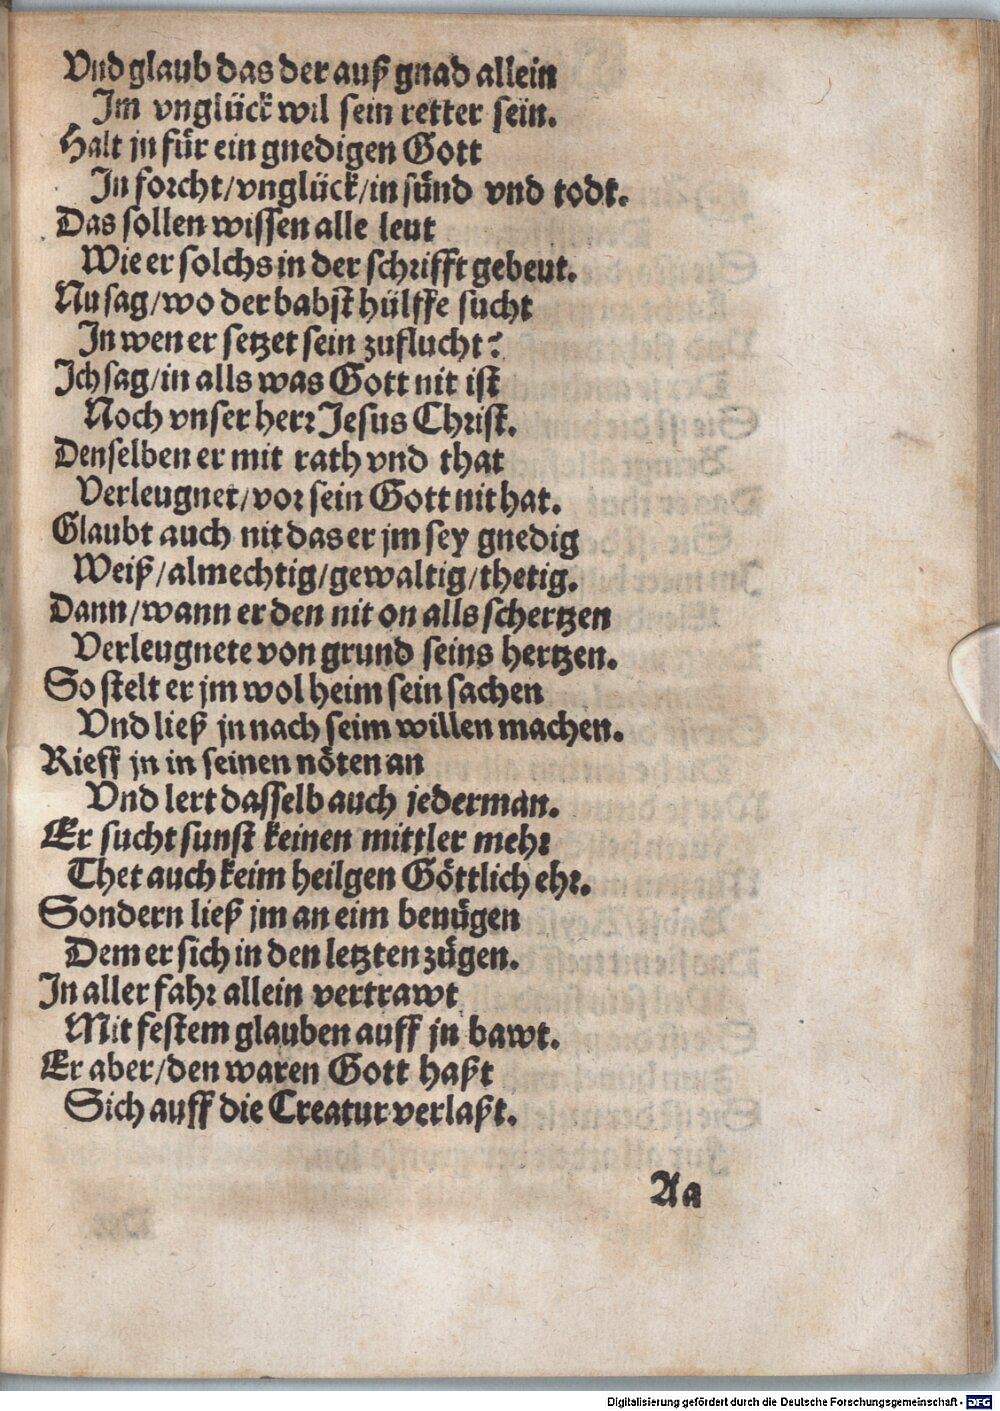 Vnd glaub das der auß gnad allein
Im vnglück wil sein retter sein.
Halt jn für ein gnedigen Gott
In forcht/vnglück/in sünd vnd todt.
Das sollen wissen alle leut
Wie er solchs in der schrifft gebeut.
Nu sag/wo der babst hülffe sucht
In wen er setzet sein zuflucht?
Ich sag/in alls was Gott nit ist
Noch vnser herr Jesus Christ.
Denselben er mit rath vnd that
Verleugnet/vor sein Gott nit hat.
Glaubt auch nit das er jm sey gnedig
Weiß/almechtig/gewaltig/thetig.
Dann/wann er den nit on alls schertzen
Verleugnete von grund seins hertzen.
So stelt er jm wol heim sein sachen
Vnd ließ jn nach seim willen machen.
Rieff jn in seinen nöten an
Vnd lert dasselb auch jederman.
Er sucht sunst keinen mittler mehr
Thet auch keim heilgen Göttlich ehr.
Sondern ließ jm an eim benügen
Dem er sich in den letzten zügen.
In aller fahr allein vertrawt
Mit festem glauben auff jn bawt.
Er aber/den waren Gott haßt
Sich auff die Creatur verlaßt.
Aa
Digitalisierung gefördert durch die Deutsche Forschungsgemeinschaft - DFG